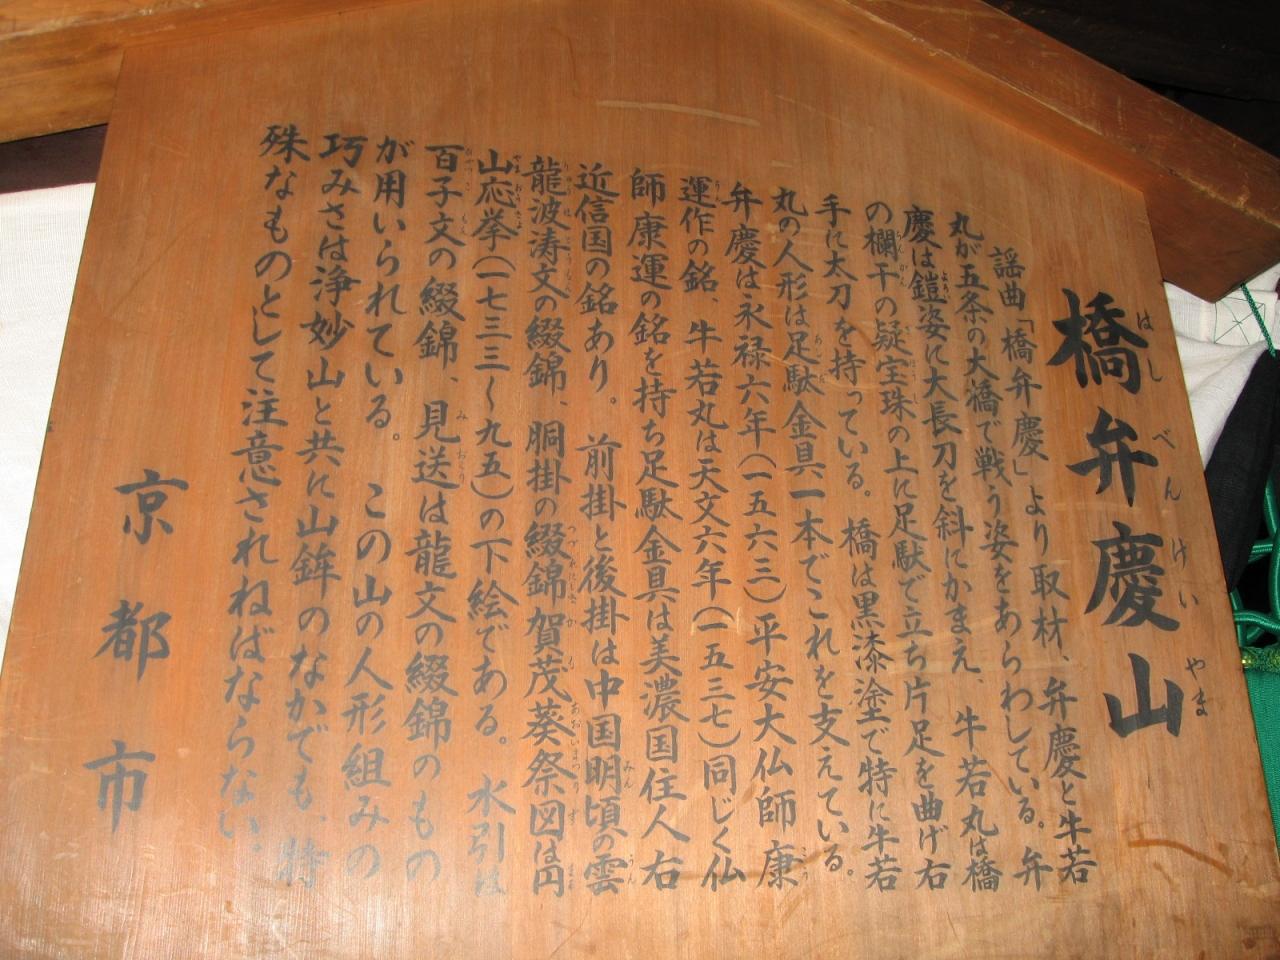 橋弁慶山
はしべんけいやま
謡曲「橋弁慶」より取材、弁慶と牛若
丸が五条の大橋で戦う姿をあらわしている。弁
慶は鎧姿に大長刀を斜にかまえ、牛若丸は橋
の欄干の疑宝珠の上に足駄で立ち片足を曲げ右
手に太刀を持っている。橋は黒漆塗で特に牛若
丸の人形は足駄金具一本でこれを支えている。
弁慶は永禄六年(一五六三)平安大仏師康
運作の銘、牛若丸は天文六年(一五三七)同じく仏
師康運の銘を持ち足駄金具は美濃国住人右
近信国の銘あり。前掛と後掛は中国明頃の雲
龍波涛文の綴錦、胴掛の綴錦賀茂葵祭図は円
山応挙(一七三三〜九五)の下絵である。水引は
百子文の綴錦、見送は龍文の綴錦のもの
が用いられている。この山の人形組みの
巧みさは浄妙山と共に山鉾のなかでも、特
殊なものとして注意されねばならない。
京都市